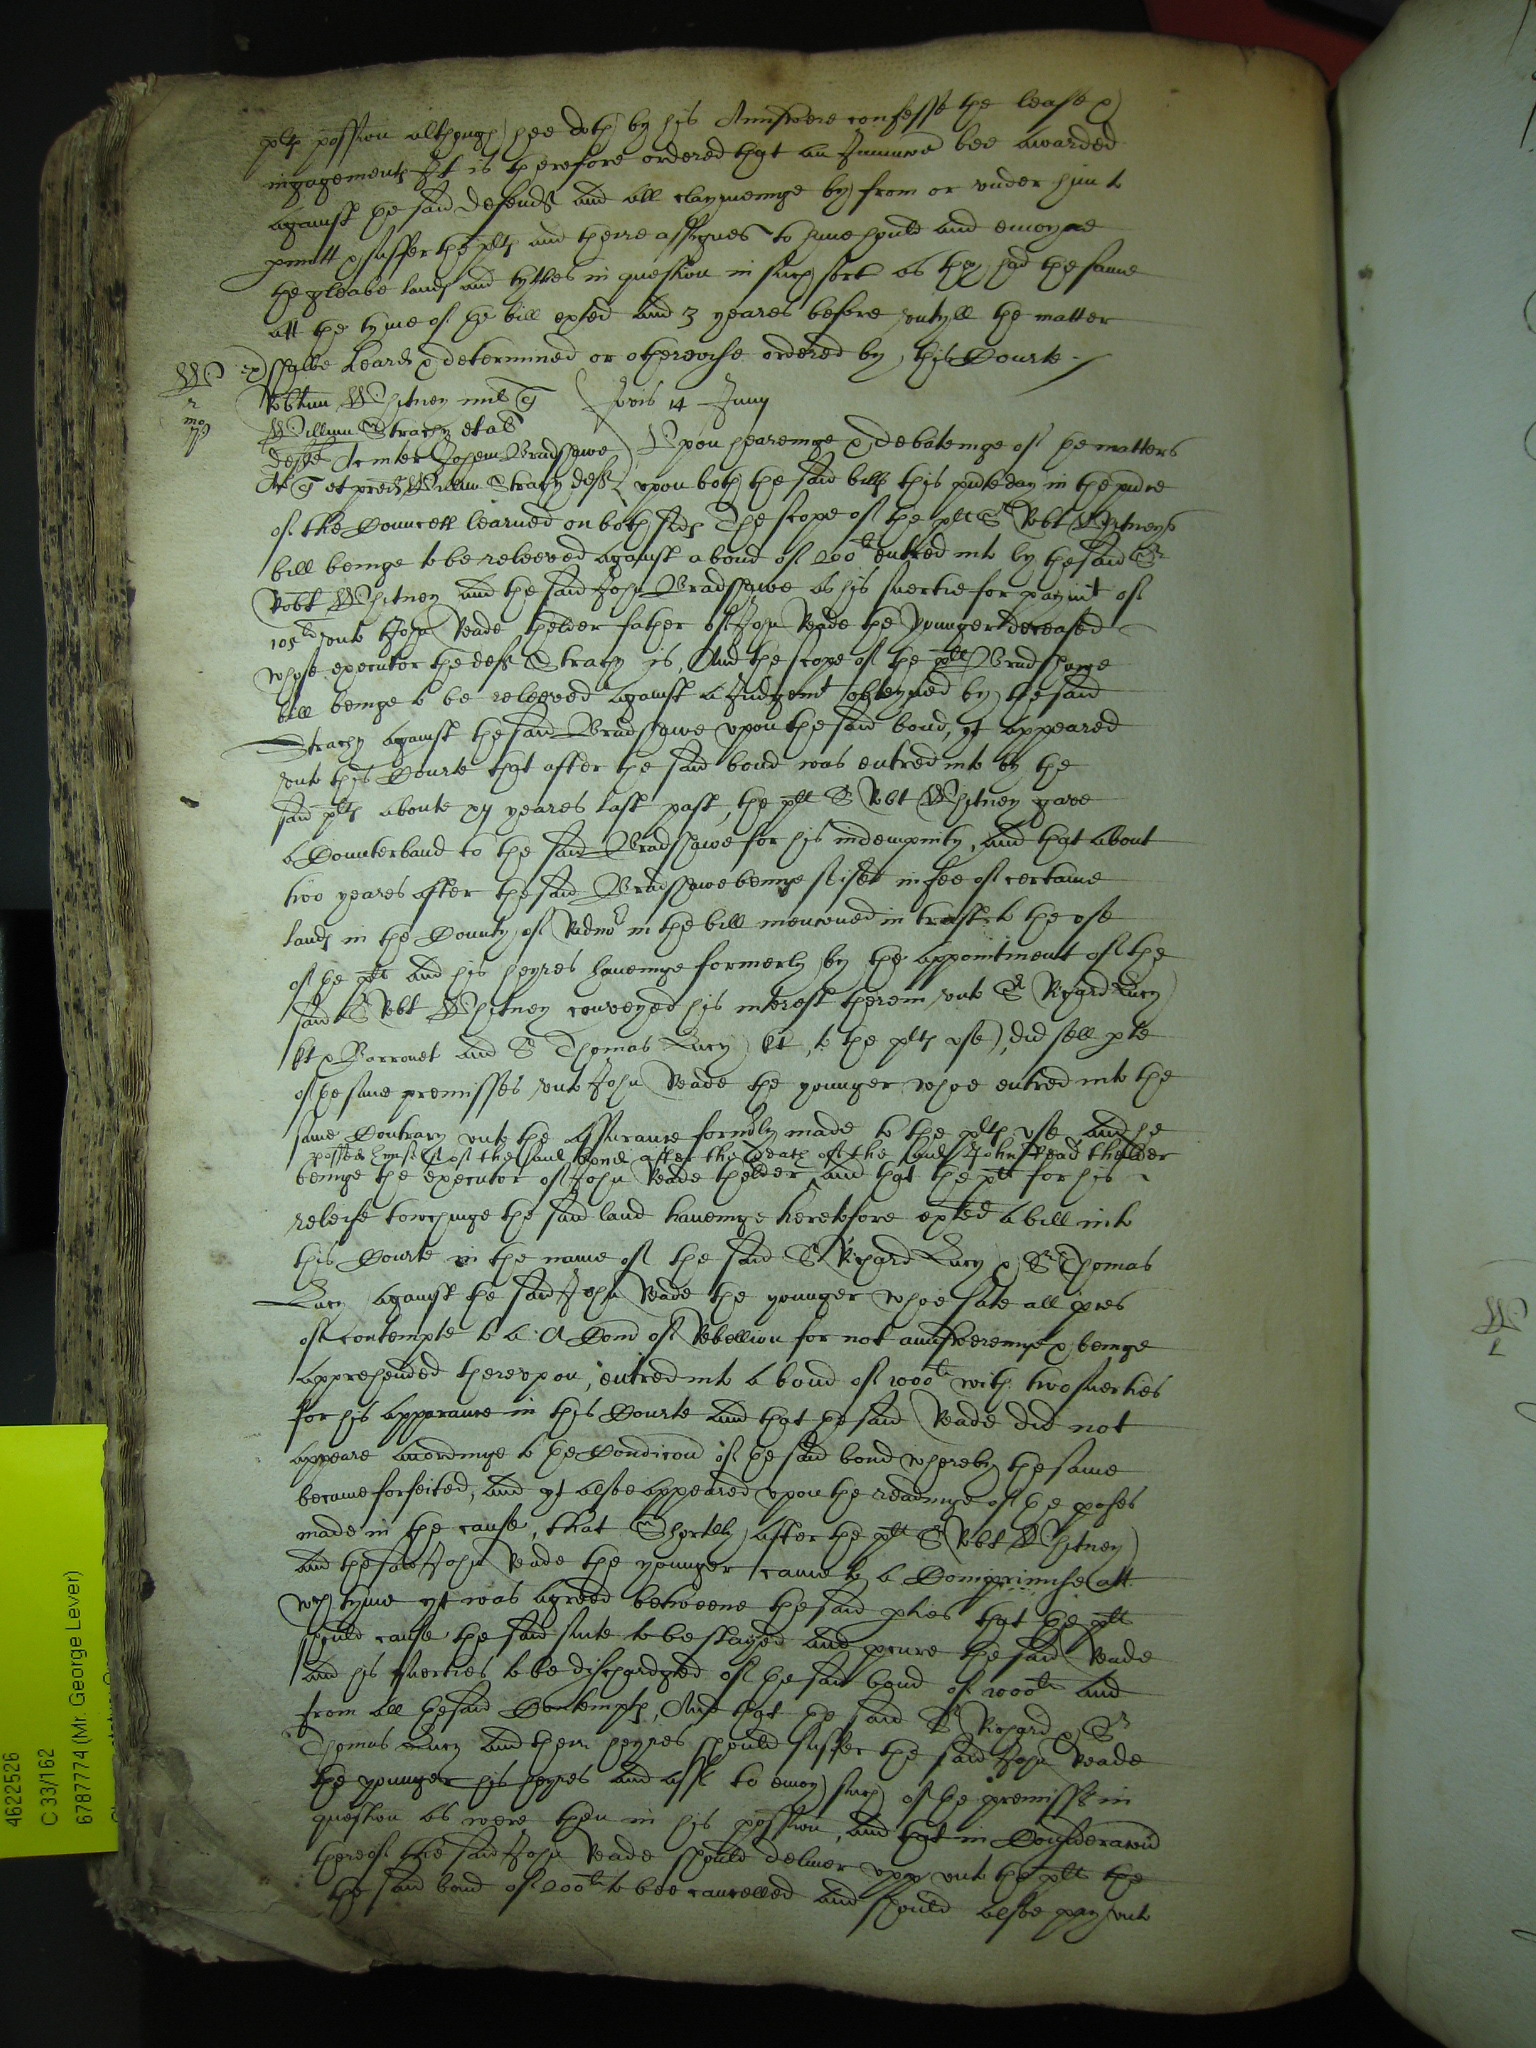 pltes possion although hee doth by his Answere confesse the lease &
ingagements It is therefore ordered that an Iniunccon bee awarded
against the said Defendts and all claymeinge by from or under him to
pmitt & suffer the plts and theire assignes to have hould and enioy the
the gleabe lands and tythes in question in such sort as they had the same
att the tyme of the bill exhted and 3 yeares before untyll the matter
shalbe heard & determined or otherwise ordered by this Courte
Robtum Whitney mil Q Jovis 14 Junij
Willm Strachy et al
defts Ac inter Johem Bradshawe Upon heareinge & debateinge of the matters
Ar Q et pred Willm Strachy deft upon both the said bills this pnte day in the pnce
of the Councell learned on both sides The scope of the plt Sr Robt Whitneys
bill beinge to be releeved against a bond of 200li entred into by the said Sr
Robt Whitney and the said John Bradshawe as his suertie for paymt of
105li unto John Reade thelder father of John Reade the younger deceased
whose executor the deft Strachy is, And the scope of the plt Bradshawe
bill beinge to be releeved against a Judgemt obteyned by the said
Strachy against the said Bradshawe upon the said bond, yt appeared
unto this Courte that after the said bond was entred into by the
said plts aboute xij yeares last past, the plt Sr Robt Whitney gave
a Counterband to the said Bradshawe for his indempnity, and that about
two yeares after the said Bradshawe beinge seised in fee of certaine
lands in the County of Radnor in the bill mencioned in trust to the use
of the plt and his heyres haveinge formerly by the appointment of the
said Sr Robt Whitney conveyed his interest therein unto Sr Richard Lucy
kt & Barronet and Sr Thomas Lucy kt, to the plts use, did sell pte
of the same premisses unto John Reade the younger whoe entred into the
same Contrary unto the assurance formerly made to the plts use and he
possest himself of the said bond after the death of the said John Read thelder
beinge the executor of John Reade thelder and that the plt for his
releife towchinge the said land haveinge heretofore exhted a bill into
this Courte in the name of the said Sr Richard Lucy & Sr Thomas
Lucy against the said John Reade the younger whoe sate all pces
of contempte to a Com of Rebellion for not aunswereinge & beinge
apprehended thereupon, entred into a bond of 1000li with two suerties
for his apparance in this Courte and that the said Reade did not
appeare accordinge to the Condicon of the said bond whereby the same
became forfeited, and yt alsoe appeared upon the readinge of the pofes
made in the cause, that Shortly after the plt Sr Robt Whitney
and the said John Reade the younger came to a Comprimise att
wch tyme yt was agreed betweene the said pties that the plt
should cause the said suite to be stayed and pcure the said Reade
and his suerties to be dischardged of the said bond of 1000li and
from all the said Contempts, And that the said Sr Richard & Sr
Thomas Lucy and their heyres should suffer the said John Reade
the younger his heyres and assignes to enioy such of the premisses in
question as were then in his possion, and that in Consideracon
thereof the said John Reade should deliver upp unto the plt the
the said bond of 200li to bee cancelled and should alsoe pay unto
4622526
C 33/162
6787774 (Mr. George Lever)